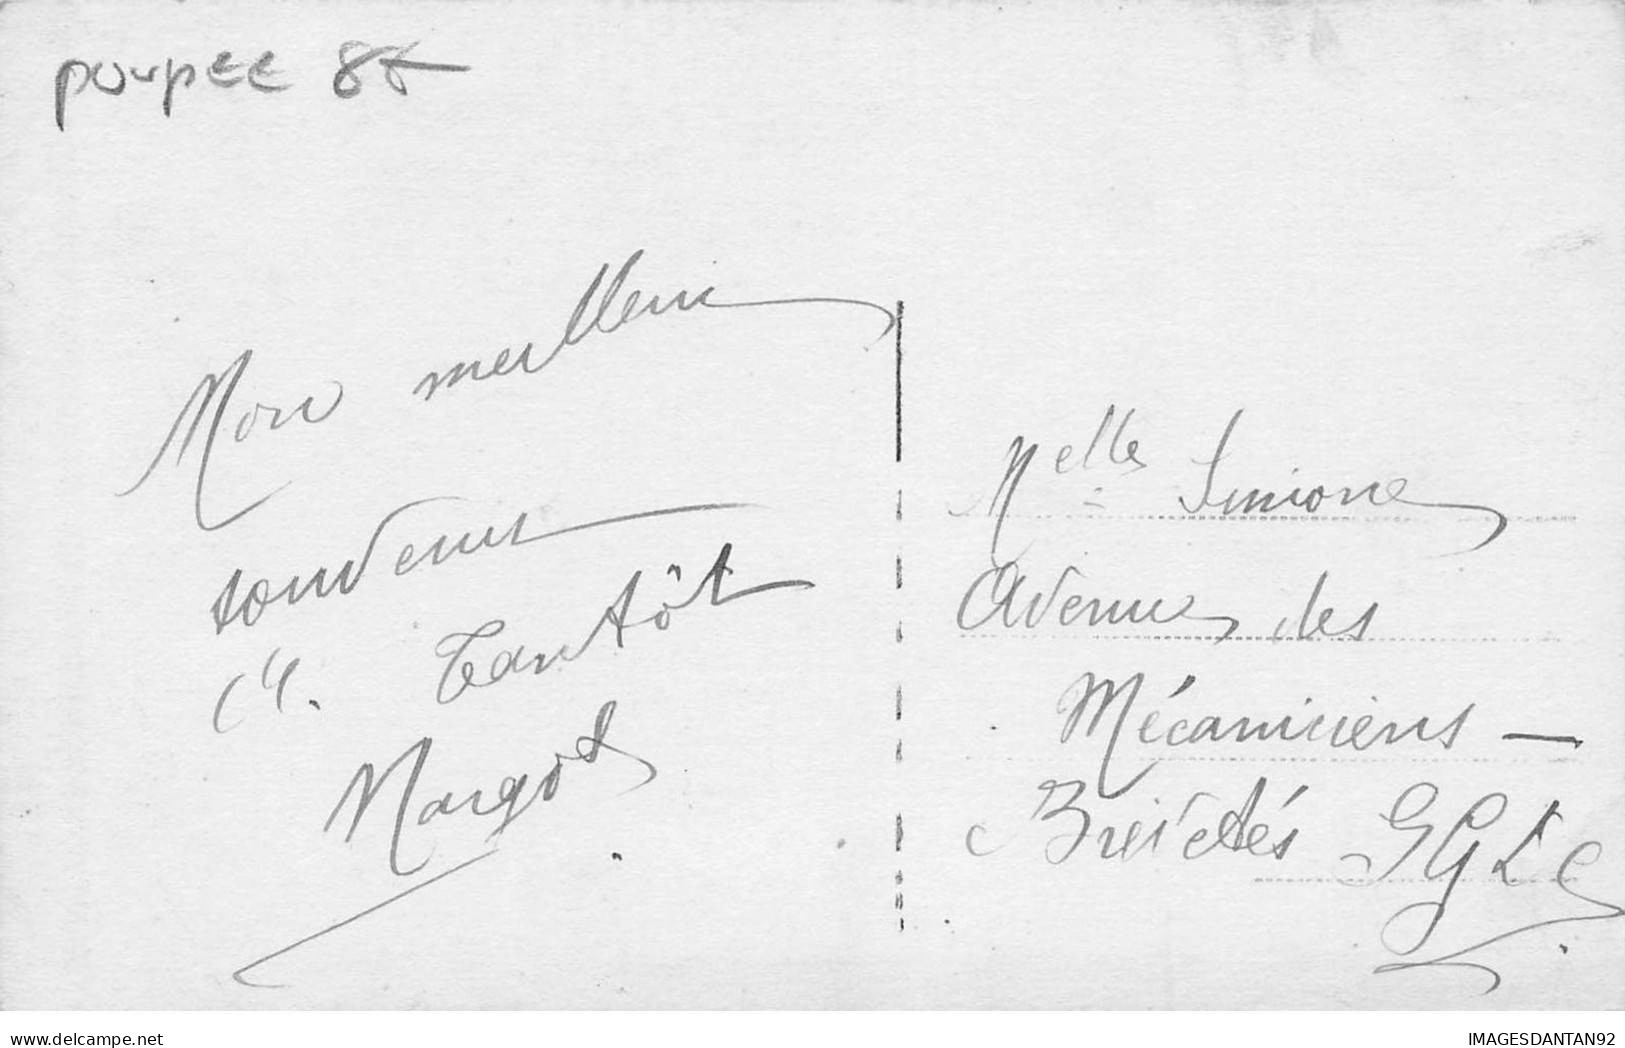 poupee 8€
Mon meilleur
souvenir
A Tantôt
Margot
Melle Simone
Avenue des
Mécaniciens —
Brevetés SGDG
delcampe.net
IMAGESDANTAN92